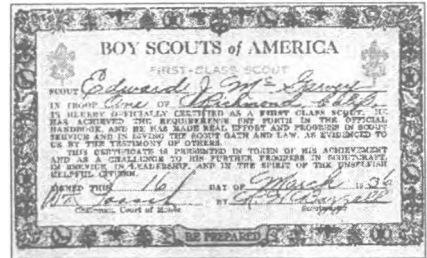 BOY SCOUTS of AMERICA
FIRST-CLASS SCOUT
SCOUT Edward J. Mc
IN TROOP One OF Richmond Calif.
IS HEREBY OFFICIALLY CERTIFIED AS A FIRST CLASS SCOUT. HE
HAS ACHIEVED THE REQUIREMENTS SET FORTH IN THE OFFICIAL
HANDBOOK, AND HE HAS MADE REAL EFFORT AND PROGRESS IN SCOUT
SERVICE AND IN LIVING THE SCOUT OATH AND LAW, AS EVIDENCED TO
US BY THE TESTIMONY OF OTHERS.
THIS CERTIFICATE IS PRESENTED IN TOKEN OF HIS ACHIEVEMENT
AND AS A CHALLENGE TO HIS FURTHER PROGRESS IN SCOUTCRAFT,
IN SERVICE, IN LEADERSHIP, AND IN THE SPIRIT OF THE UNSELFISH
HELPFUL CITIZEN.
SIGNED THIS 16 DAY OF March 1936
BY
Chairman, Court of Honor
BE PREPARED